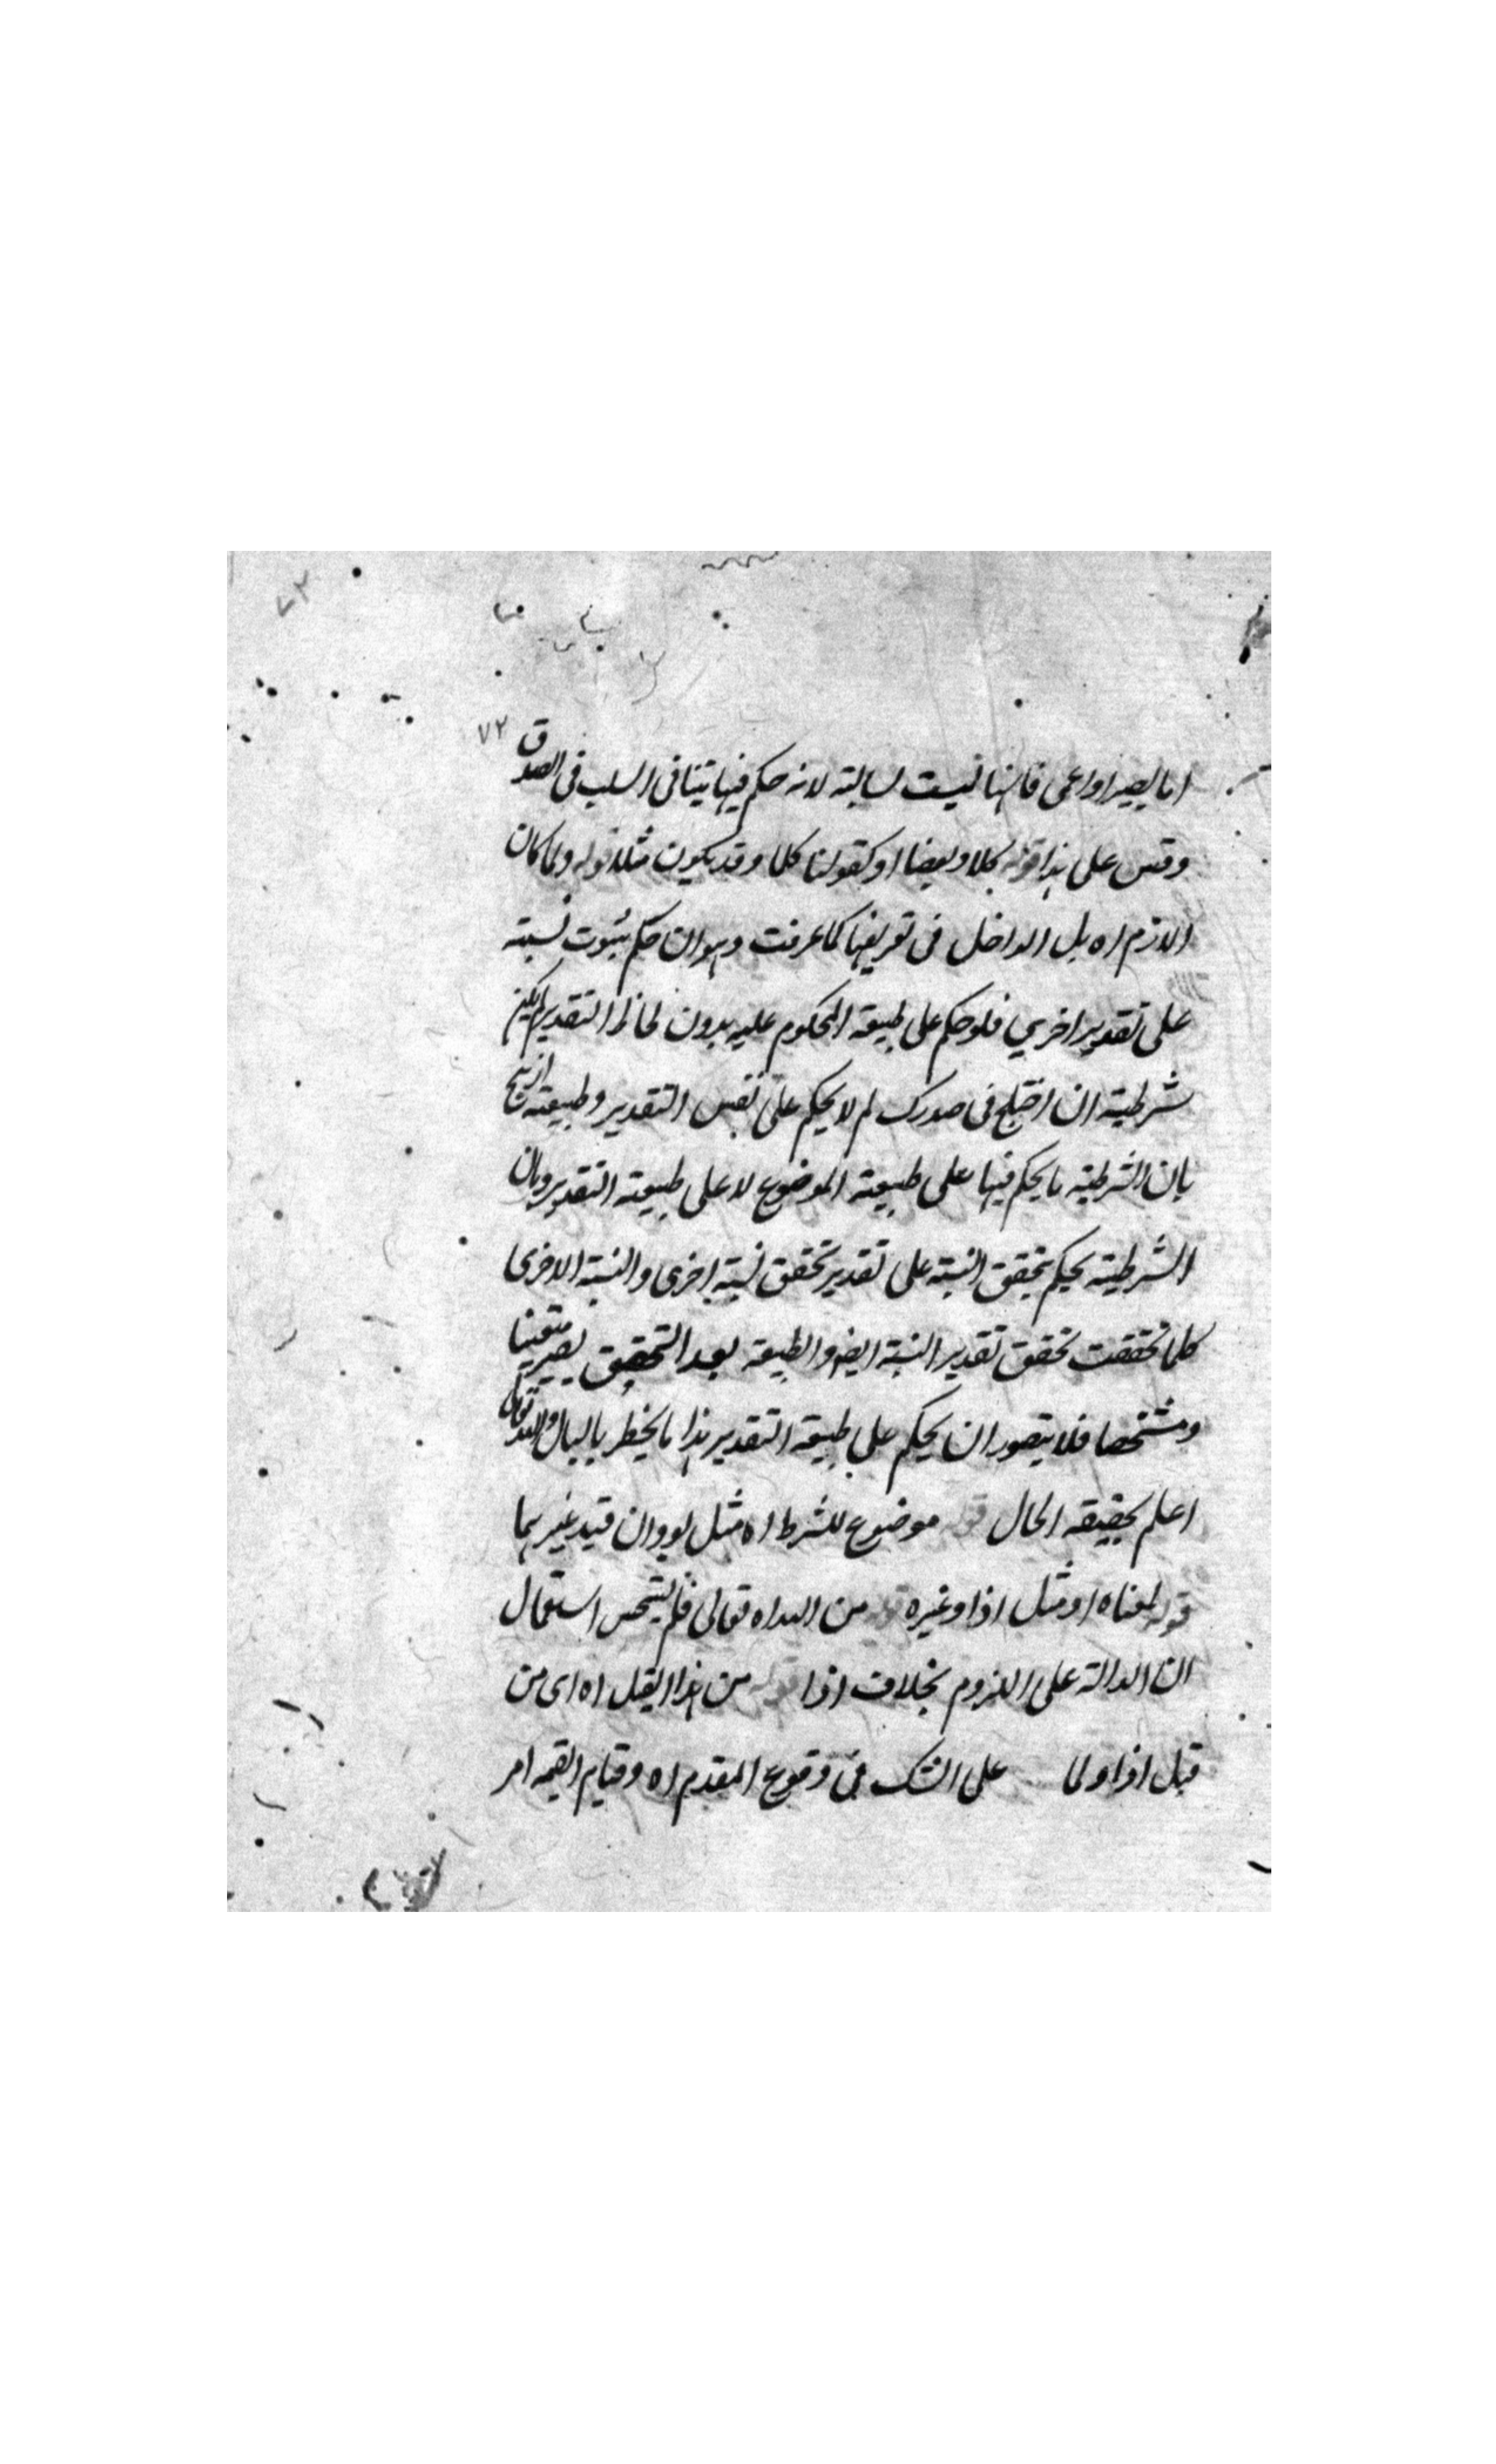 ٧٢
اما بصيرا او اعمى فانها ليست لسالبة لانه حكم فيها تنافى السلب فى الصدق
وقس على هذا قوله كلا وبعضا او كقولنا كلا وقد يكون مثلا قوله ولما كان
اللازم اه بل الداخل فى تعريفها كما عرفت وهو ان حكم بثبوت نسبة
على تقدير اخرى فلو حكم على طبيعة المحكوم عليه بدون لحاظ التقدير لم يكن
شرطية ان اختلج فى صدرك لم لا يحكم على نفس التقدير وطبيعته ازيح
بان الشرطية ما يحكم فيها على طبيعة الموضوع لا على طبيعة التقدير وبان
الشرطية يحكم بتحقق النسبة على تقدير تحقق نسبة اخرى والنسبة الاخرى
كلما تحققت تحقق تقدير النسبة ايضا والطبيعة بعد التحقق يصير متعينا
ومشخصا فلا يتصور ان يحكم على طبيعة التقدير هذا ما يخطر بالبال والله تعالى
اعلم بحقيقة الحال قوله موضوع للشرط اه مثل لو وان قيد غيرهما
قوله لمعناه او مثل اذا وغيره قوله من الله اه تعالى فلم يستحسن استعمال
ان الدالة على اللزوم بخلاف اذا قوله من هذا القبل اه اى من
قبل اذا ولما على الشك فى وقوع المقدم اه وقيام القيمة امر